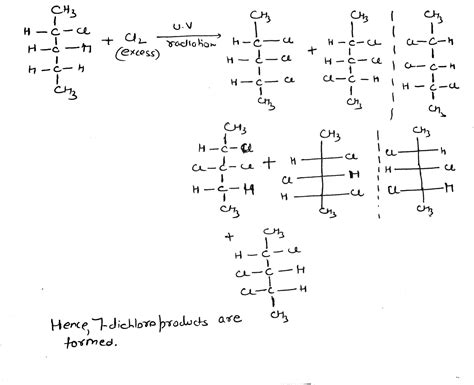 CH3 U.V CH3 CH3 CH3
H - C - Cl + Cl2 radiation H - C - Cl + H - C - Cl Cl - C - H
H - C - H (excess) H - C - Cl H - C - Cl Cl - C - H
H - C - H H - C - Cl Cl - C - H H - C - Cl
CH3 CH3 CH3 CH3
CH3 CH3 CH3
H - C - Cl + H Cl Cl H
Cl - C - Cl Cl H H Cl
H - C - H H Cl Cl H
CH3 CH3 CH3
+
CH3
H - C - Cl
Cl - C - H
Cl - C - H
CH3
Hence, 7-dichloro products are
formed.